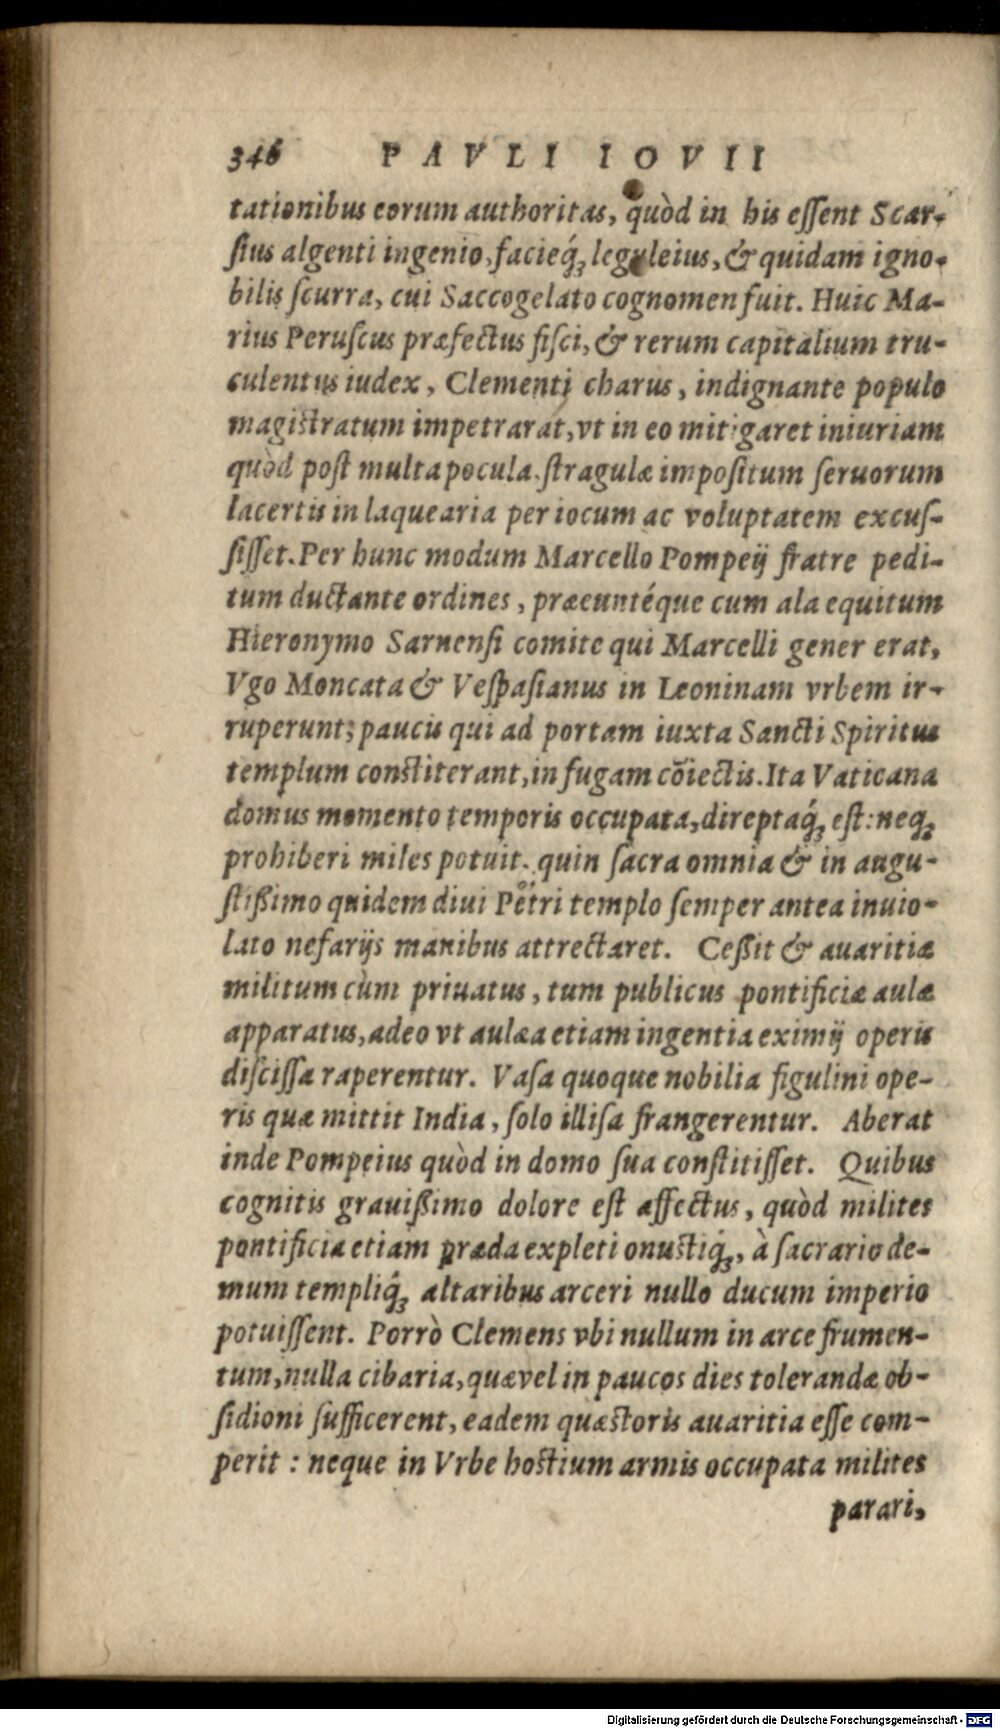 346 PAVLI IOVII
tationibus eorum authoritas, quòd in his essent Scar-
sius algenti ingenio, facieq́ꝫ leguleius, & quidam igno-
bilis scurra, cui Saccogelato cognomen fuit. Huic Ma-
rius Peruscus præfectus fisci, & rerum capitalium tru-
culentus iudex, Clementi charus, indignante populo
magistratum impetrarat, vt in eo mitigaret iniuriam
quòd post multa pocula, stragulæ impositum seruorum
lacertis in laquearia per iocum ac voluptatem excus-
sisset. Per hunc modum Marcello Pompeij fratre pedi-
tum ductante ordines, præeuntéque cum ala equitum
Hieronymo Sarnensi comite qui Marcelli gener erat,
Vgo Moncata & Vespasianus in Leoninam vrbem ir-
ruperunt; paucis qui ad portam iuxta Sancti Spiritus
templum constiterant, in fugam cōiectis. Ita Vaticana
domus momento temporis occupata, direptaq́ꝫ est: neqꝫ
prohiberi miles potuit, quin sacra omnia & in augu-
stißimo quidem diui Petri templo semper antea inuio-
lato nefarijs manibus attrectaret. Ceßit & auaritiæ
militum cùm priuatus, tum publicus pontificiæ aulæ
apparatus, adeo vt aulæa etiam ingentia eximij operis
discissa raperentur. Vasa quoque nobilia figulini ope-
ris quæ mittit India, solo illisa frangerentur. Aberat
inde Pompeius quòd in domo sua constitisset. Quibus
cognitis grauißimo dolore est affectus, quòd milites
pontificia etiam præda expleti onustiq́ꝫ, à sacrario de-
mum templiq́ꝫ altaribus arceri nullo ducum imperio
potuissent. Porrò Clemens vbi nullum in arce frumen-
tum, nulla cibaria, quæ vel in paucos dies tolerandæ ob-
sidioni sufficerent, eadem quæstoris auaritia esse com-
perit : neque in Vrbe hostium armis occupata milites
parari,
Digitalisierung gefördert durch die Deutsche Forschungsgemeinschaft - DFG